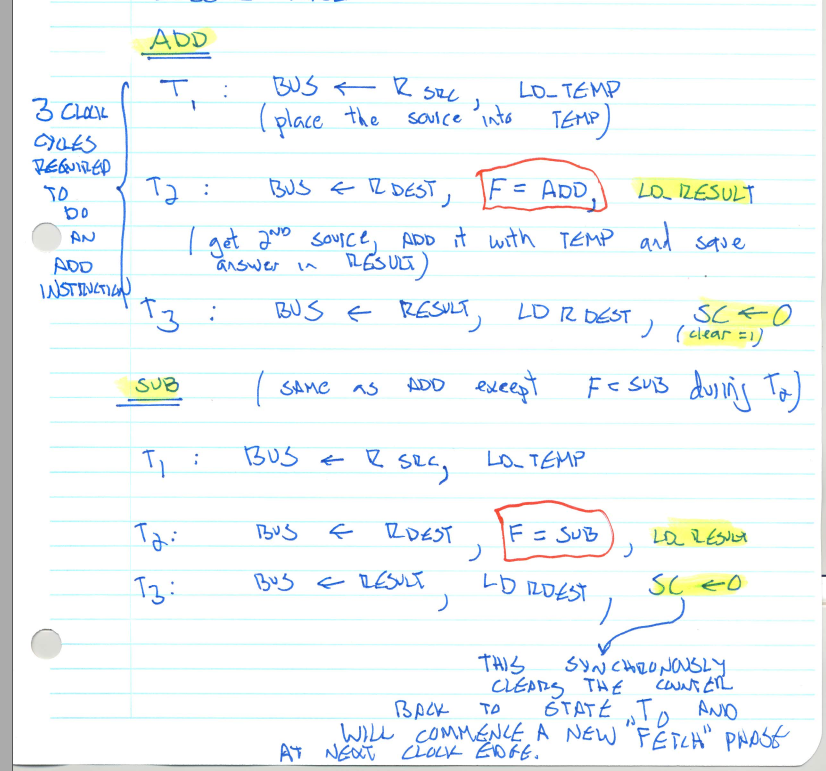 ADD
T1 : BUS ← R SRC, LD_TEMP
(place the source into TEMP)
3 CLOCK
CYCLES
REQUIRED
TO
DO
AN
ADD
INSTRUCTION
T2 : BUS ← RDEST, F = ADD, LD_RESULT
(get 2ND source, ADD it with TEMP and save
answer in RESULT)
T3 : BUS ← RESULT, LD RDEST, SC ← 0
(clear = 1)
SUB (SAME as ADD except F = SUB during T2)
T1 : BUS ← R SRC, LD_TEMP
T2: BUS ← RDEST, F = SUB, LD_RESULT
T3: BUS ← RESULT, LD RDEST, SC ← 0
THIS SYNCHRONOUSLY
CLEARS THE COUNTER
BACK TO STATE T0 AND
WILL COMMENCE A NEW "FETCH" PHASE
AT NEXT CLOCK EDGE.